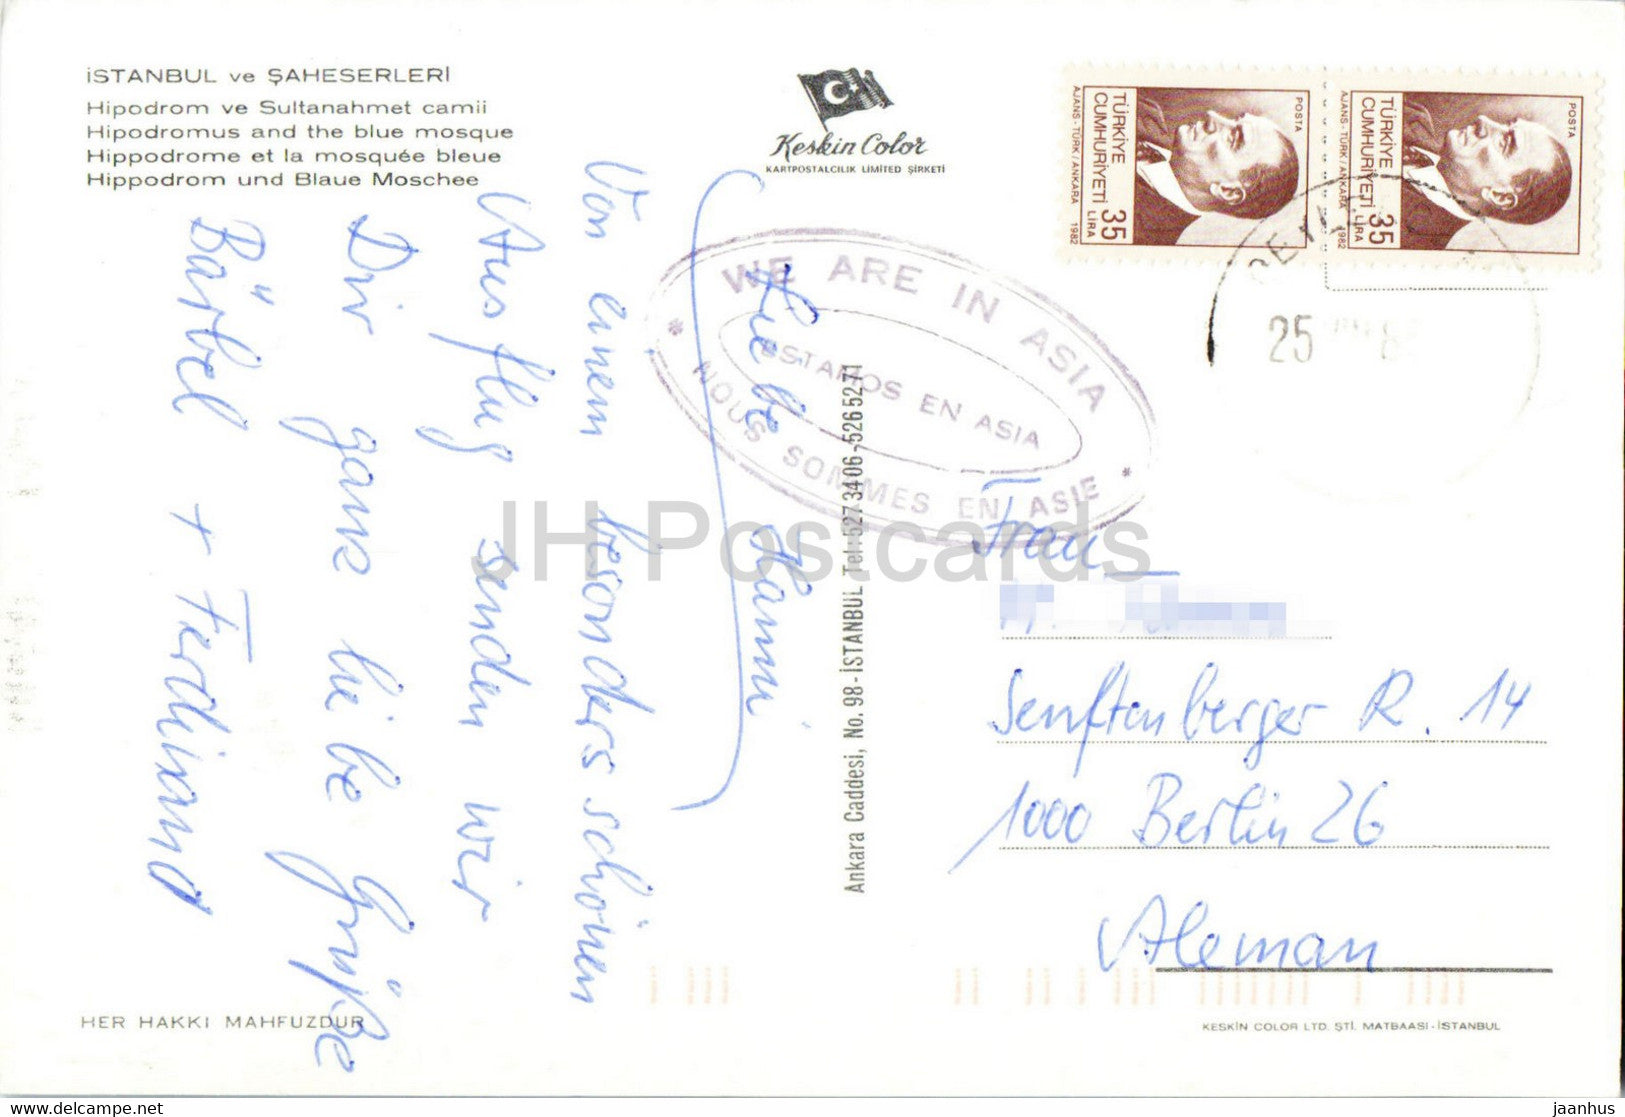 İSTANBUL ve ŞAHESERLERİ
Hipodrom ve Sultanahmet camii
Hipodromus and the blue mosque
Hippodrome et la mosquée bleue
Hippodrom und Blaue Moschee
Keskin Color
KARTPOSTALCILIK LİMİTED ŞİRKETİ
POSTA
TÜRKİYE
CUMHURİYETİ
35
LİRA
AJANS-TÜRK/ANKARA 1982
POSTA
TÜRKİYE
CUMHURİYETİ
35
LİRA
AJANS-TÜRK/ANKARA 1982
25
WE ARE IN ASIA
ESTAMOS EN ASIA
NOUS SOMMES EN ASIE
Liebe Hanni
Von einem besonders schönen
Ausflug senden wir
Dir ganz liebe Grüße
Bärbel + Ferdinand
Ankara Caddesi, No. 98 - İSTANBUL Tel: 527 34 06 - 526 52 71
Frau
Senftenberger R. 14
1000 Berlin 26
Aleman
HER HAKKI MAHFUZDUR
KESKİN COLOR LTD. ŞTİ. MATBAASI - İSTANBUL
JH Postcards
www.delcampe.net
jaanhus